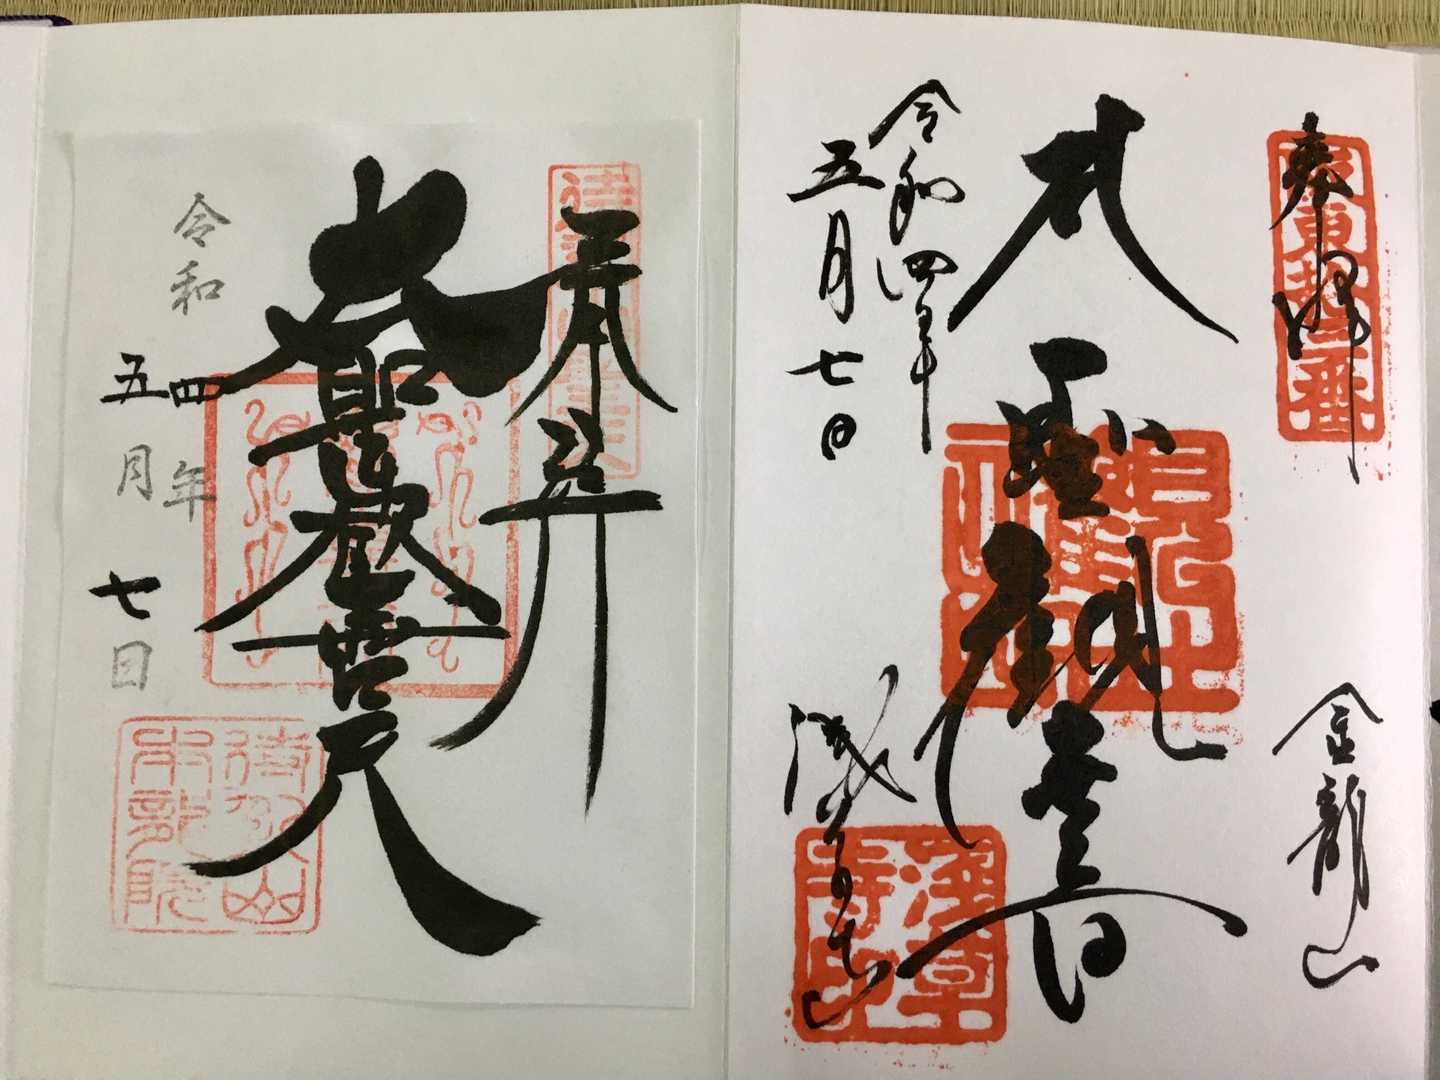 奉拝
坂東拾三番
金龍山
大聖観世音
浅草寺
浅草寺印
令和四年
五月七日
奉拝
大聖歓喜天
待乳山
本龍院
令和四年
五月七日